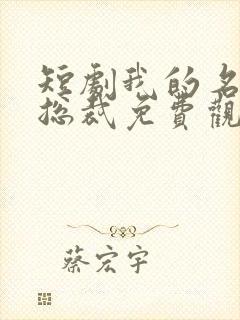 短劇我的名
總裁免費觀
蔡宏宇